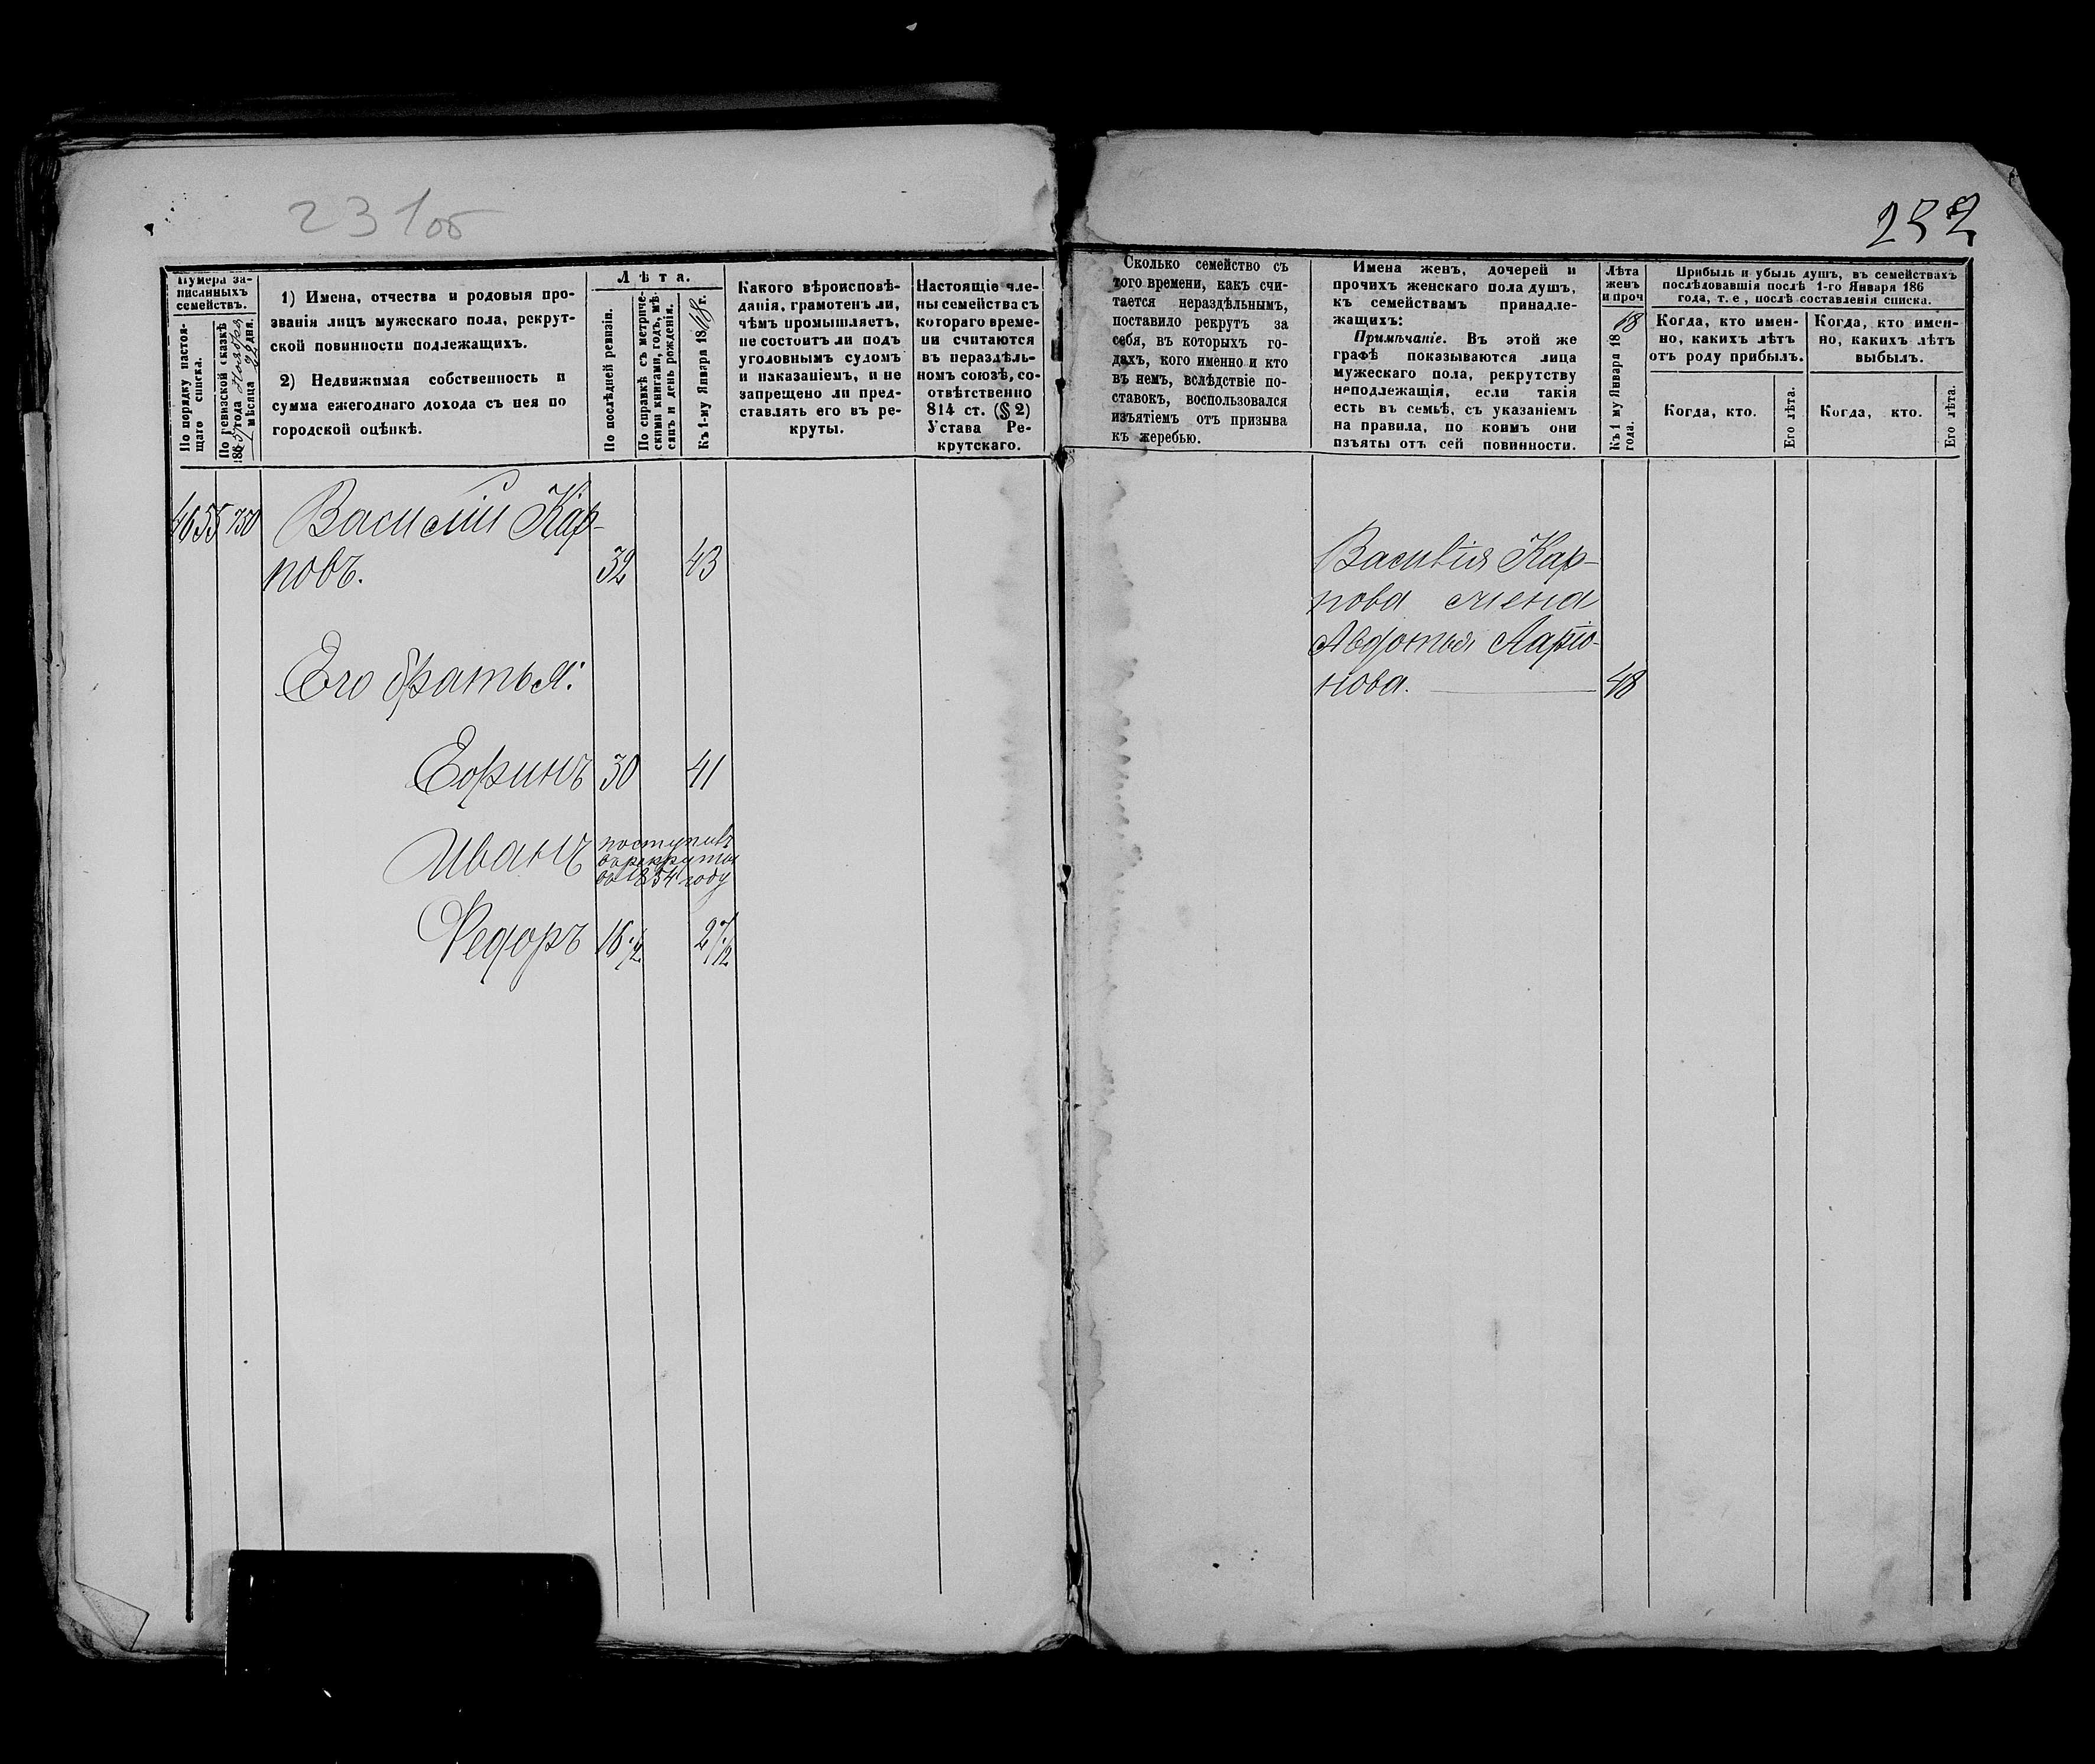 231об
232
Нумера за-
писанныхъ
семействъ.
По порядку настоя-
щаго списка.
По ревизской сказкѣ
185 года
мѣсяца 26 дня.
1) Имена, отчества и родовыя про-
званія лицъ мужескаго пола, рекрут-
ской повинности подлежащихъ.
2) Недвижимая собственность и
сумма ежегоднаго дохода съ нея по
городской оцѣнкѣ.
Лѣта.
По послѣдней ревизіи.
По справкѣ съ метриче-
скими книгами, годъ, мѣ-
сяцъ и день рожденія.
Къ 1-му Января 1868 г.
Какого вѣроисповѣ-
данія, грамотенъ ли,
чѣмъ промышляетъ,
не состоитъ ли подъ
уголовнымъ судомъ
и наказаніемъ, и не
запрещено ли пред-
ставлять его въ ре-
круты.
Настоящіе чле-
ны семейства съ
котораго време-
ни считаются
въ нераздѣль-
номъ союзѣ, со-
отвѣтственно
814 ст. (§ 2)
Устава Ре-
крутскаго.
Сколько семейство съ
того времени, какъ счи-
тается нераздѣльнымъ,
поставило рекрутъ за
себя, въ которыхъ го-
дахъ, кого именно и кто
въ немъ, вслѣдствіе по-
ставокъ, воспользовался
изъятіемъ отъ призыва
къ жеребью.
Имена женъ, дочерей и
прочихъ женскаго пола душъ,
къ семействамъ принадле-
жащихъ:
Примѣчаніе. Въ этой же
графѣ показываются лица
мужескаго пола, рекрутству
неподлежащія, если такія
есть въ семьѣ, съ указаніемъ
на правила, по коимъ они
изъяты отъ сей повинности.
Лѣта
женъ
и проч
Къ 1 му Января 1868
года.
Прибыль и убыль душъ, въ семействахъ
послѣдовавшія послѣ 1-го Января 186
года, т. е, послѣ составленія списка.
Когда, кто имен-
но, какихъ лѣтъ
отъ роду прибылъ.
Когда, кто имен-
но, какихъ лѣтъ
выбылъ.
Когда, кто.
Его лѣта.
Когда, кто.
Его лѣта.
4655 750 Василій Кар-
повъ. 32 43
Его братья:
Ефимъ 30 41
Иванъ поступилъ
в рекруты
въ 1854 году
Федоръ 16 1/2 27 1/2
Василія Кар-
пова жена
Авдотья Ларіо-
нова. 48